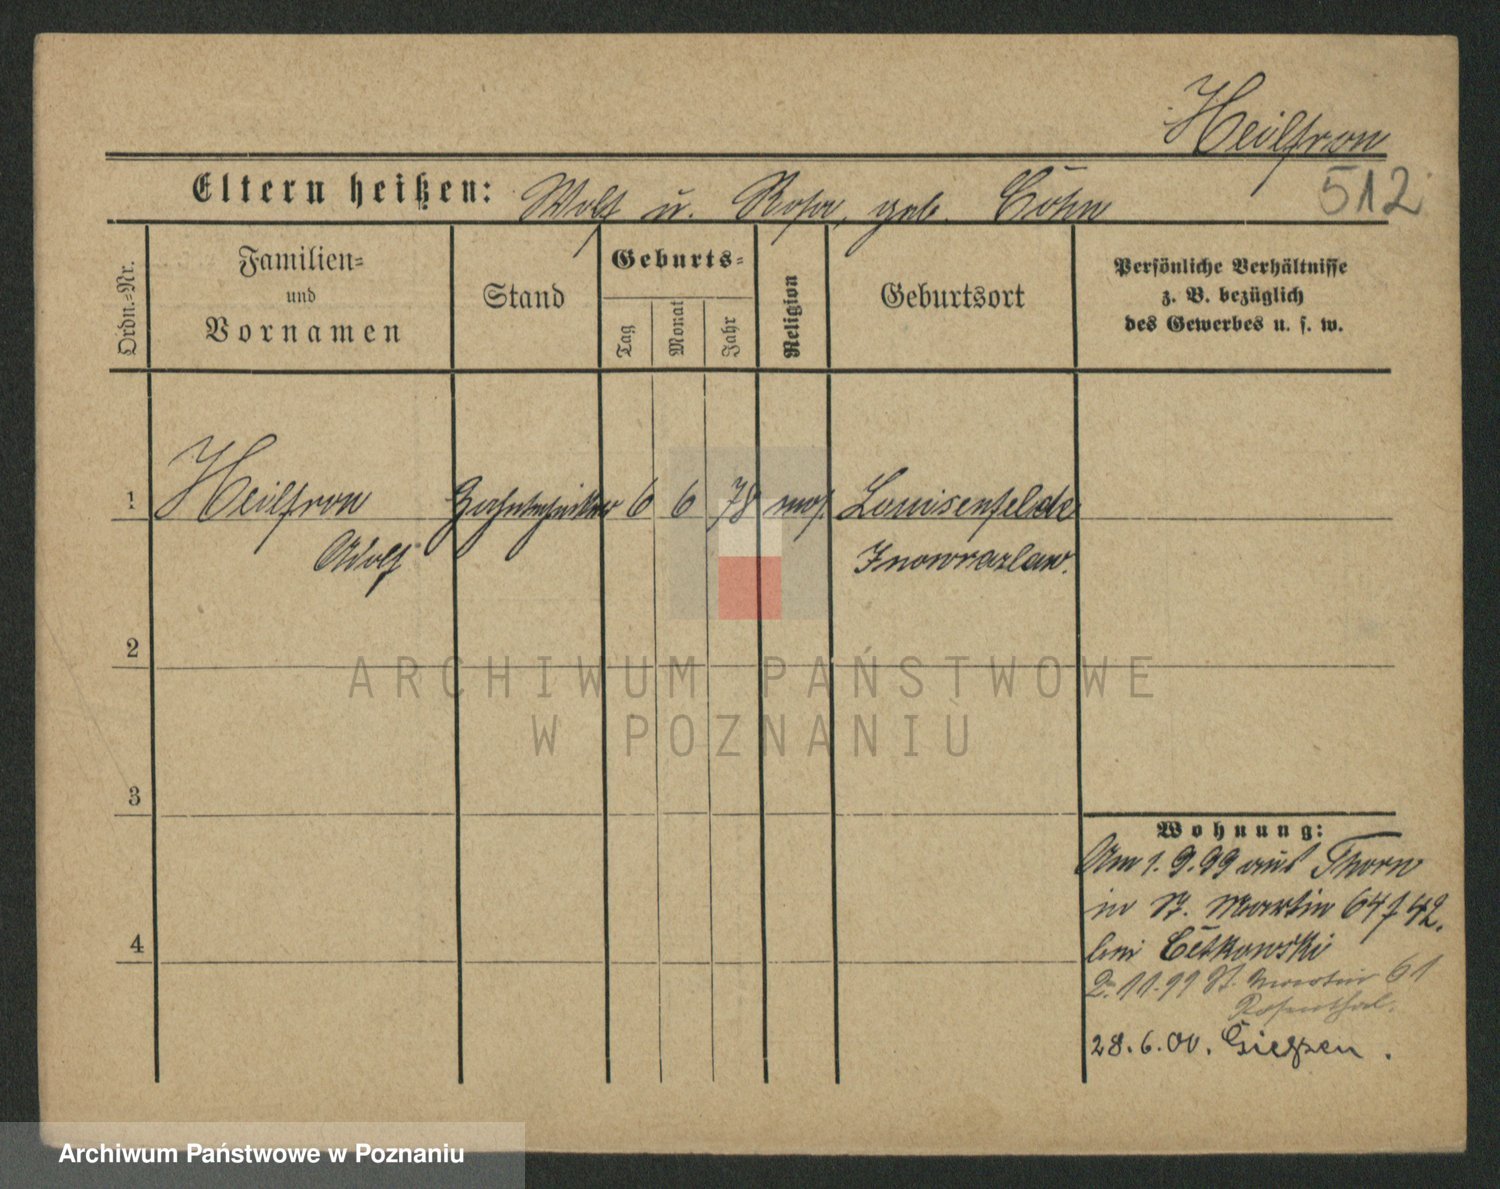 Heilfron
512
Eltern heißen: Wolf u. Rosa, geb. Cohn
Ordn.=Nr.
Familien=
und
Vornamen
Stand
Geburts=
Tag
Monat
Jahr
Religion
Geburtsort
Persönliche Verhältnisse
z. B. bezüglich
des Gewerbes u. s. w.
1 Heilfron Zahntechniker 6 6 78 mos. Louisenfelde
Adolf Inowrazlaw.
2
ARCHIWUM PAŃSTWOWE
W POZNANIU
3
Wohnung:
Am 1.9.99 aus Thorn
in St. Martin 64 / 42.
bei
4
2. 11.99 St. Martin 61
Rosenthal.
28.6.00. Gießen.
Archiwum Państwowe w Poznaniu